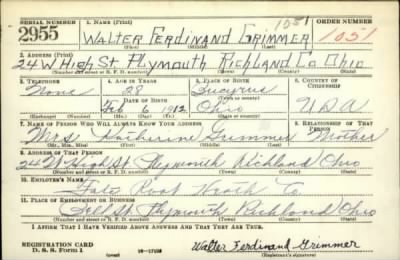 SERIAL NUMBER 1. NAME (Print) ORDER NUMBER
2955 WALTER FERDINAND GRIMMER 1051 1051
(First) (Middle) (Last)
2. ADDRESS (Print)
24 W High St Plymouth Richland Co Ohio
(Number and street or R. F. D. number) (Town) (County) (State)
3. TELEPHONE 4. AGE IN YEARS 5. PLACE OF BIRTH 6. COUNTRY OF CITIZENSHIP
None 28 Bucyrus
DATE OF BIRTH (Town or county)
Feb 6 1912 Ohio U S A
(Mo.) (Day) (Yr.) (State or country)
7. NAME OF PERSON WHO WILL ALWAYS KNOW YOUR ADDRESS 8. RELATIONSHIP OF THAT PERSON
Mrs Katherine Grimmer Mother
(Mr., Mrs., Miss) (First) (Middle) (Last)
9. ADDRESS OF THAT PERSON
24 W High St Plymouth Richland Ohio
(Number and street or R. F. D. number) (Town) (County) (State)
10. EMPLOYER'S NAME
Fate Root Heath Co
11. PLACE OF EMPLOYMENT OR BUSINESS
Bell St Plymouth Richland Ohio
(Number and street or R. F. D. number) (Town) (County) (State)
I AFFIRM THAT I HAVE VERIFIED ABOVE ANSWERS AND THAT THEY ARE TRUE.
REGISTRATION CARD
D. S. S. Form 1 Walter Ferdinand Grimmer
(Registrant's signature)